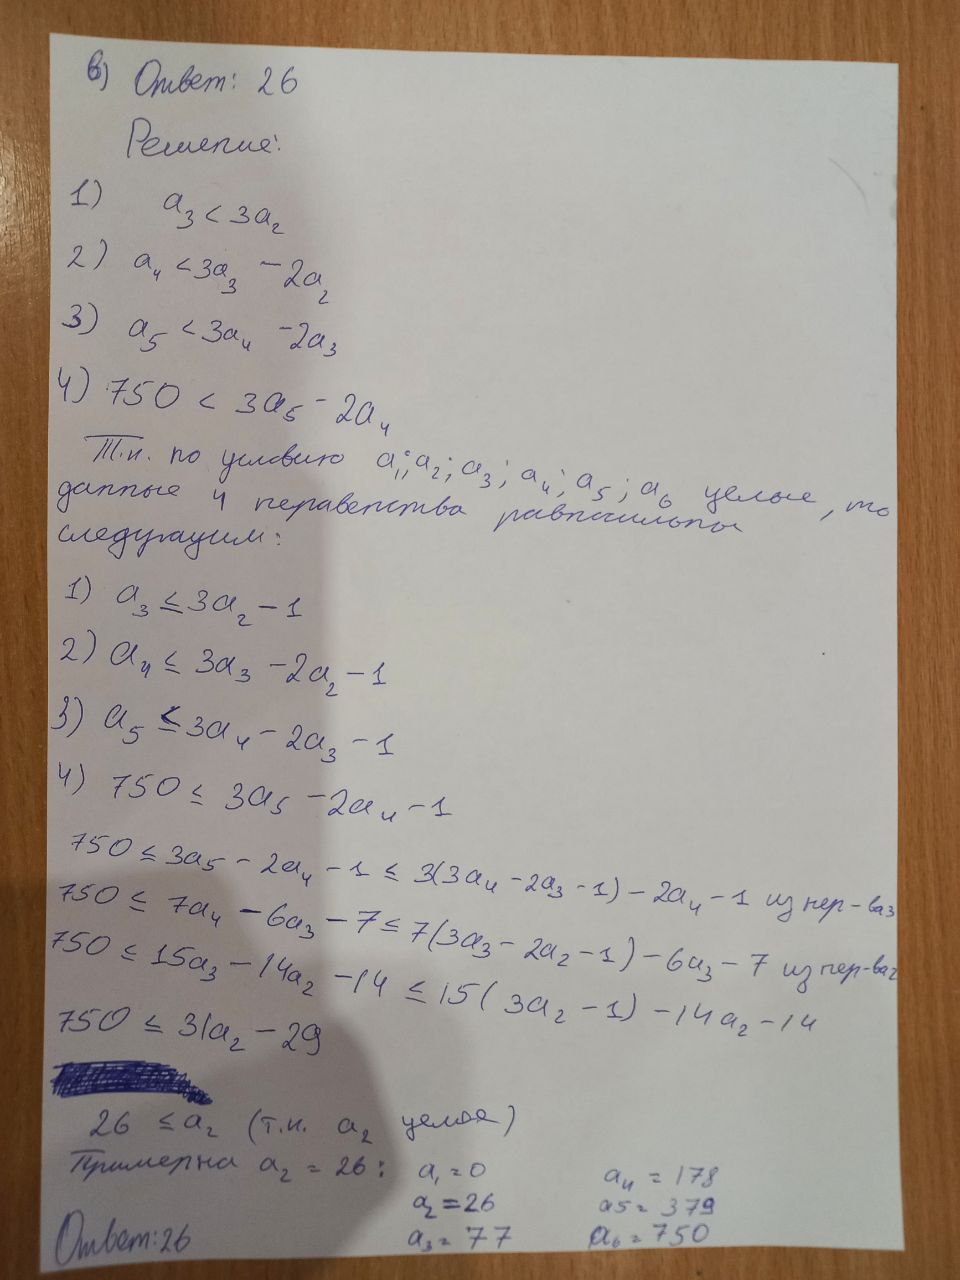 в) Ответ: 26
Решение:
1) a₃ < 3a₂
2) a₄ < 3a₃ - 2a₂
3) a₅ < 3a₄ - 2a₃
4) 750 < 3a₅ - 2a₄
Т.к. по условию a₁; a₂; a₃; a₄; a₅; a₆ целые, то
данные 4 неравенства равносильны
следующим:
1) a₃ ≤ 3a₂ - 1
2) a₄ ≤ 3a₃ - 2a₂ - 1
3) a₅ ≤ 3a₄ - 2a₃ - 1
4) 750 ≤ 3a₅ - 2a₄ - 1
750 ≤ 3a₅ - 2a₄ - 1 ≤ 3(3a₄ - 2a₃ - 1) - 2a₄ - 1 из нер-ва3
750 ≤ 7a₄ - 6a₃ - 7 ≤ 7(3a₃ - 2a₂ - 1) - 6a₃ - 7 из нер-ва2
750 ≤ 15a₃ - 14a₂ - 14 ≤ 15(3a₂ - 1) - 14a₂ - 14
750 ≤ 31a₂ - 29
26 ≤ a₂ (т.к. a₂ целое)
Пример на a₂ = 26: a₁ = 0 a₄ = 178
a₂ = 26 a₅ = 379
Ответ: 26 a₃ = 77 a₆ = 750